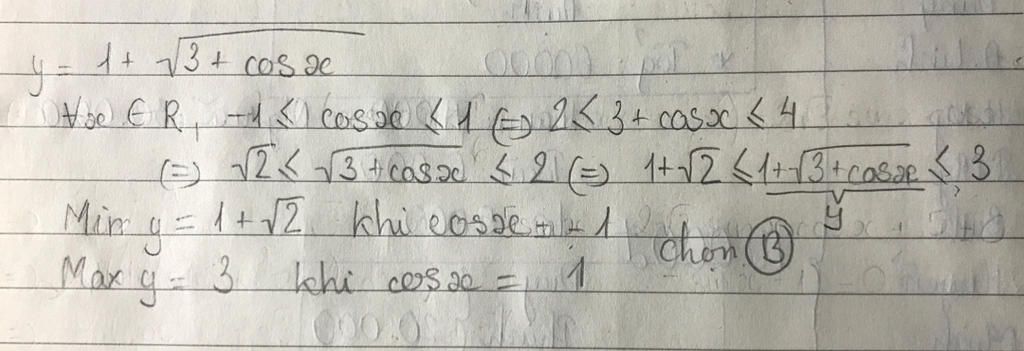 y = 1 + √(3 + cosx)
∀x ∈ R, -1 ≤ cosx ≤ 1 (=) 2 ≤ 3 + cosx ≤ 4
(=) √2 ≤ √(3 + cosx) ≤ 2 (=) 1+√2 ≤ 1+√(3+cosx) ≤ 3
y
Min y = 1 + √2 khi cosx = -1
Chọn B
Max y = 3 khi cosx = 1